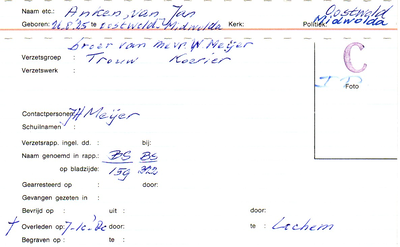 Naam etc.: Anken, van Jan Oostwold
Geboren: 21.8.'25 te Oostwold-Midwolda Kerk: Politiek: Midwolda
broer van mevr. W Meijer
Verzetsgroep : Trouw Koerier
Verzetswerk :
C
Foto
Contactpersonen: JH Meijer
Schuilnamen :
Verzetsrapp. ingel. dd. : bij:
Naam genoemd in rapp.: BS BS
op bladzijde: 159
Gearresteerd op : door:
Gevangen gezeten in :
Bevrijd op : uit : door:
† Overleden op : te : Lochem
Begraven op : te :